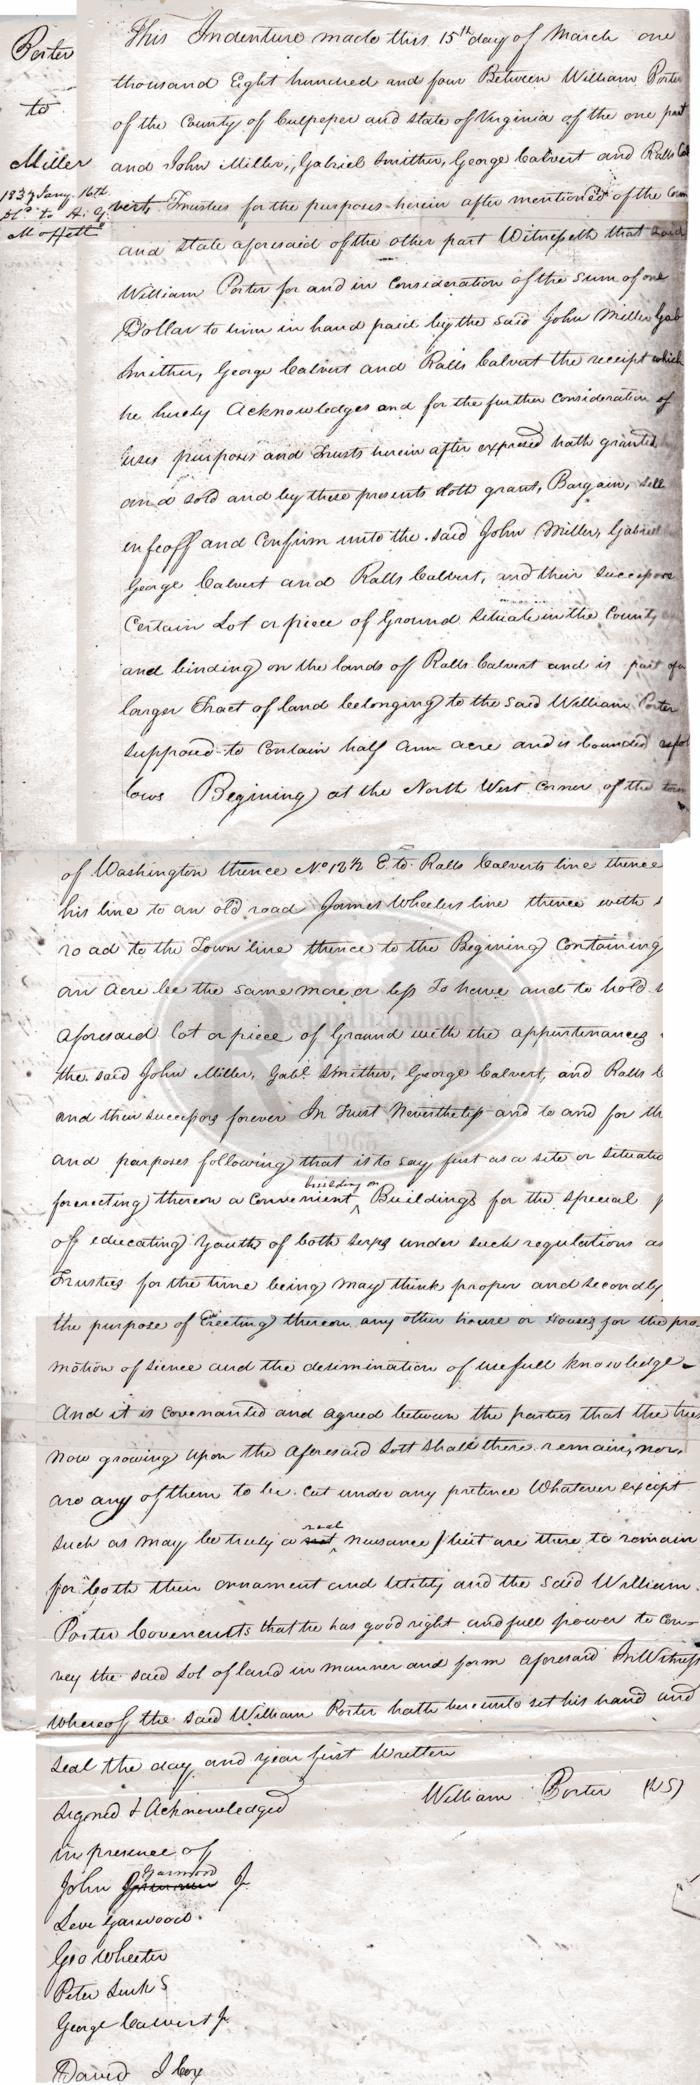 Porter
to
Miller
1837 Jany. 16th
Dd. to H. G.
Moffett
This Indenture made this 15th day of March one
thousand Eight hundred and four Between William Porter
of the County of Culpeper and state of Virginia of the one part
and John Miller, Gabriel Smither, George Calvert and Ralls Cal
vert, Trustees for the purposes herein after mentioned of the Coun
and state aforesaid of the other part Witnesseth that said
William Porter for and in Consideration of the sum of one
Dollar to him in hand paid by the said John Miller Gab
Smither, George Calvert and Ralls Calvert the receipt which
he hereby Acknowledges and for the further Consideration of
uses purposes and Trusts herein after expressed hath granted
and sold and by these presents doth grant, Bargain, sell
enfeoff and Confirm unto the said John Miller, Gabriel
George Calvert and Ralls Calvert, and their successors
Certain Lot or piece of Ground situate in the County
and binding on the lands of Ralls Calvert and is part of a
larger Tract of land belonging to the said William Porter
supposed to Contain half Ann acre and is bounded as fol
lows Begining at the North West corner of the town
of Washington thence No. 12½ E. to Ralls Calverts line thence
his line to an old road James Wheelers line thence with
road to the Town line thence to the Begining Containing
an Acre be the same more or less To have and to hold
aforesaid lot or piece of Ground with the appurtenances
the said John Miller, Gabl. Smither, George Calvert, and Ralls C
and their successors forever In Trust Nevertheless and to and for th
and purposes following that is to say first as a site or situatio
for erecting thereon a Convenient building or Buildings for the special p
off educating Youths of both sexes under such regulations as
Trustees for the time being may think proper and secondly
the purpose of Erecting thereon any other house or Houses for the pro
motion of sience and the desimination of usefull knowledge
And it is Covenanted and agreed between the parties that the trees
now growing upon the aforesaid Lott shall there remain, nor
are any of them to be cut under any pretence Whatever except
such as may be truly a real nuisance but are there to remain
for both their ornament and Utility and the said William
Porter Covenentts that he has good right and full power to Con-
vey the said Lot of land in manner and form aforesaid In Witness
whereof the said William Porter hath hereunto set his hand and
seal the day and year first Written
Signed & Acknowledged William Porter (LS)
in presence of
John Garwood Jr
Levi Garwood
Geo Wheeler
Peter Link S
George Calvert Jr
David I Cox
Rappahannock
Historical
1965